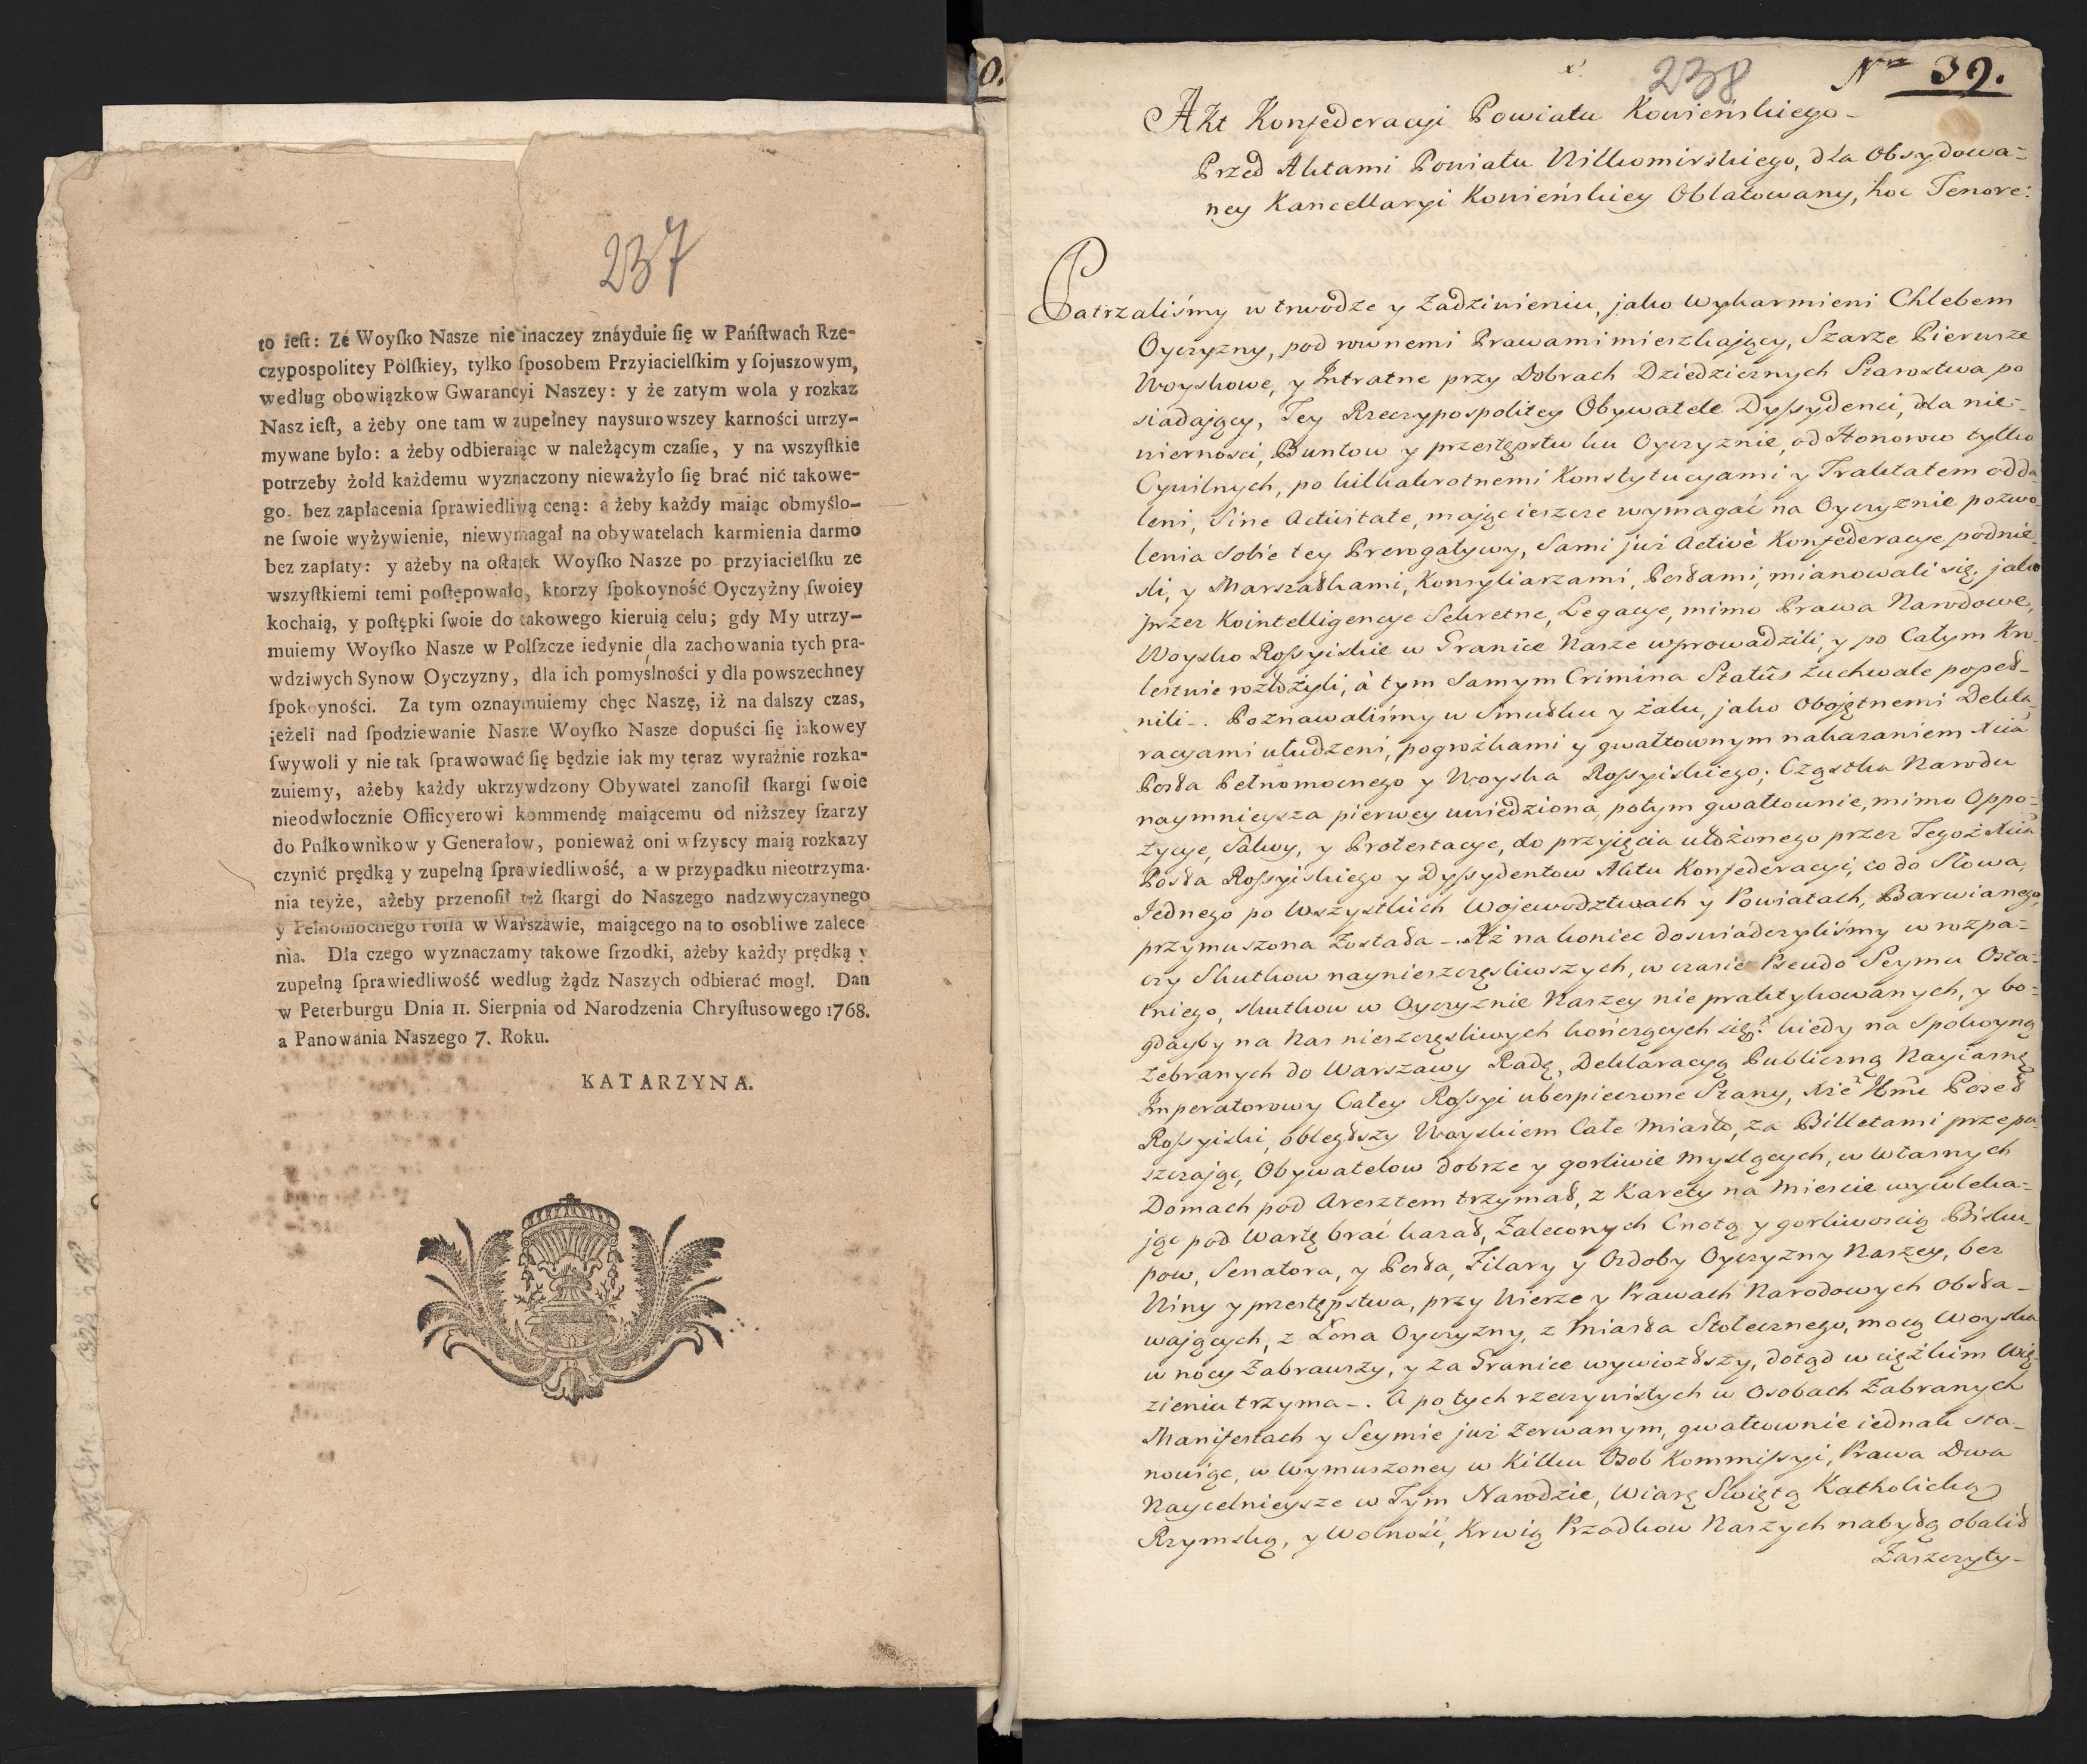 237
to ieſt: Zé Woyſko Nasze nie inaczey znáyduie ſię w Pańſtwach Rze-
czypospolitey Polſkiey, tylko ſposobem Przyiacielſkim y ſojuszowym,
według obowiązkow Gwarancyi Naszey: y że zatym wola y rozkaz
Nasz ieſt, a żeby one tam w zupełney naysurowszey karności utrzy-
mywane było: a żeby odbieraiąc w należącym czaſie, y na wszyſtkie
potrzeby żołd każdemu wyznaczony nieważyło ſię brać nić takowe-
go bez zapłacenia ſprawiedliwą ceną: a żeby każdy maiąc obmyślo-
ne ſwoie wyżywienie, niewymagał na obywatelach karmienia darmo
bez zapłaty: y ażeby na oſtatek Woyſko Nasze po przyiacielſku ze
wszyſtkiemi temi poſtępowało, ktorzy ſpokoyność Oyczyżny ſwoiey
kochaią, y poſtępki ſwoie do takowego kieruią celu; gdy My utrzy-
muiemy Woyſko Nasze w Polſzcze iedynie dla zachowania tych pra-
wdziwych Synow Oyczyzny, dla ich pomyślności y dla powszechney
ſpokoyności. Za tym oznaymuiemy chęc Naszę, iż na dalszy czas,
jeżeli nad ſpodziewanie Nasze Woyſko Nasze dopuści ſię iakowey
ſwywoli y nie tak ſprawować ſię będzie iak my teraz wyrażnie rozka-
zuiemy, ażeby każdy ukrzywdzony Obywatel zanoſił ſkargi ſwoie
nieodwłocznie Officyerowi kommendę maiącemu od niższey ſzarzy
do Pułkownikow y Generałow, ponieważ oni wſzyscy maią rozkazy
czynić prędką y zupełną ſprawiedliwość, a w przypadku nieotrzyma-
nia teyże, ażeby przenoſił też ſkargi do Naszego nadzwyczaynego
y Pełnomocnego Poſła w Warszawie, maiącego na to osobliwe zalece
nia. Dla czego wyznaczamy takowe ſrzodki, ażeby każdy prędką y
zupełną ſprawiedliwość według żądz Naszych odbierać mogł. Dan
w Peterburgu Dnia 11. Sierpnia od Narodzenia Chryſtusowego 1768.
a Panowania Naszego 7. Roku.
KATARZYNA.
238
Nro 39.
Akt Konfederacyi Powiatu Kowieńskiego -
Przed Aktami Powiatu Wilkomirskiego, dla Obsydowa-
ney Kancellaryi Kowieńskiey Oblatowany, hoc Tenore:
Patrzaliśmy w trwodze y Zadziwieniu, jako Wykarmieni Chlebem
Oyczyzny, pod rownemi Prawami mieszkający, Szarże Pierwsze
Woyskowe, y Intratne przy Dobrach Dziedzicznych Starostwa po
siadający, Tey Rzeczypospolitey Obywatele Dyssydenci, dla nie-
wierności, Buntow y przestępstw ku Oyczyznie, od Honorow tylko
Cywilnych, po kilkakrotnemi Konstytucyami y Traktatem odda-
leni, Sine Activitate, mając ieszcze wymagać na Oyczyznie pozwo-
lenia Sobie tey Prerogatywy, Sami już Activè Konfederacye podnie-
śli, y Marszałkami, Konsyliarzami, Posłami, mianowali się, jako
przez Kointelligencye Sekretne, Legacye, mimo Prawa Narodowe,
Woysko Rossyiskie w Granice Nasze wprowadzili, y po Całym Kro-
lestwie rozłożyli, à tym Samym Crimina Statûs zuchwale popeł-
nili -. Poznawaliśmy w Smutku y żalu, jako Obojętnemi Dekla-
racyami ułudzeni, pogrożkami y gwałtownym nakazaniem Xcia
Posła Pełnomocnego y Woyska Rossyiskiego; Cząstka Narodu
naymnieysza pierwey uwiedziona, potym gwałtownie, mimo Oppo-
zycye, Salwy, y Protestacye, do przyięcia ułożonego przez Tegoż Xcia
Posła Rossyiskiego y Dyssydentow Aktu Konfederacyi, co do Słowa,
Jednego po Wszystkich Wojewodztwach y Powiatach, Barwianego,
przymuszona Została -. Aż nakoniec doświadczyliśmy w rozpa-
czy Skutkow naynieszczęśliwszych, w czasie Pseudo Seymu Osta-
tniego, skutkow w Oyczyznie Naszey nie praktykowanych, y bo-
gdayby na Nas nieszczęśliwych kończących się: kiedy na Spokoyną
Zebranych do Warszawy Radę, Deklaracyą Publiczną Nayiasney
Imperatorowy Całey Rossyi ubespieczone Stany, Xże Poseł
Rossyiski, obległszy Woyskiem Całe Miasto, za Billetami przepu-
szczając, Obywatelow dobrze y gorliwie myslących, w własnych
Domach pod Aresztem trzymał, z Karety na Miescie wywleka-
jąc pod Wartę brać kazał, Zaleconych Cnotą y gorliwoscią Bisku-
pow, Senatora, y Posła, Filary y Ozdoby Oyczyzny Naszey, bez
Winy y przestępstwa, przy Wierze y Prawach Narodowych Obsta-
wających, z Łona Oyczyzny, z Miasta Stołecznego, mocą Woyska
w nocy Zabrawszy, y za Granice wywiozłszy, dotąd w ciężkim Wię-
zieniu trzyma -. A po tych rzeczywistych w Osobach Zabranych
Manifestach y Seymie już Zerwanym, gwałtownie iednak sta-
nowiąc, w Wymuszoney w Kilku Osob Kommissyi, Prawa Dwa
Naycelnieysze w Tym Narodzie, Wiarę Swiętą Katholicką
Rzymską, y Wolność, Krwią Przodkow Naszych nabytą obalił
Zaszczyty-